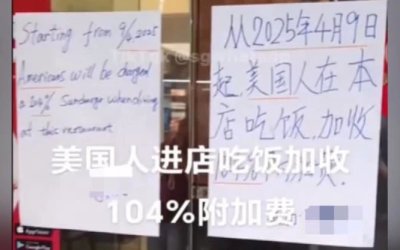 Starting from 9/4 2025
Americans will be charged
a 104% Surcharge when dining
at this restaurant
从2025年4月9日
起美国人在本
店吃饭.加收
美国人进店吃饭加收
104%附加费
App Store
Google Play